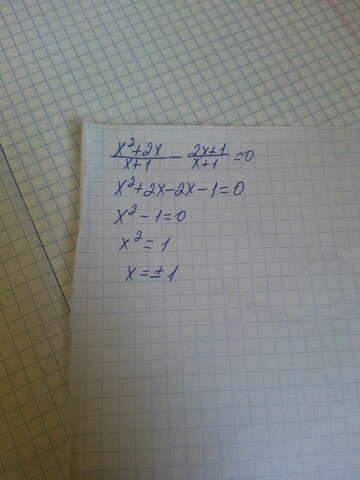 x²+2x/x+1 − 2x+1/x+1 =0
x²+2x−2x−1=0
x²−1=0
x²=1
x=±1